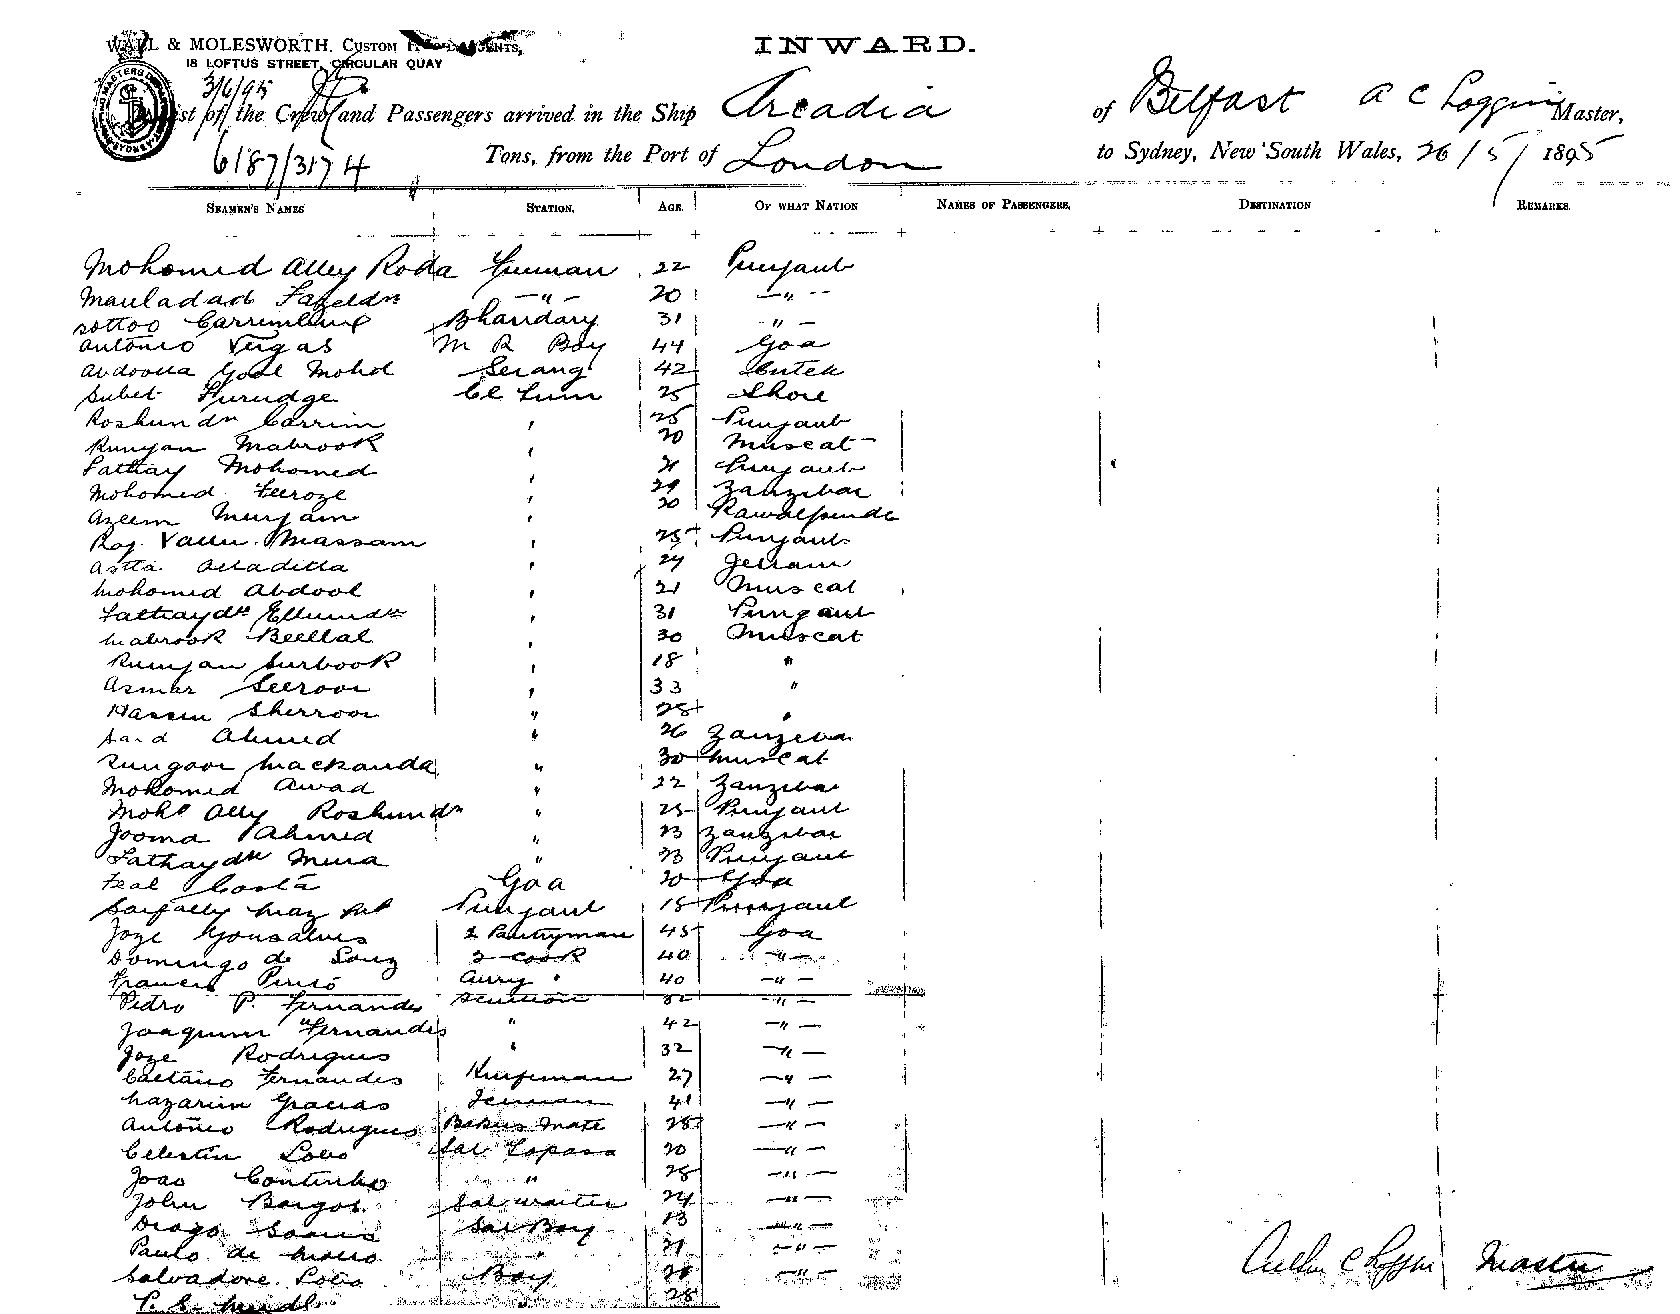 WALL & MOLESWORTH. CUSTOM AGENTS,
18 LOFTUS STREET, CIRCULAR QUAY
INWARD.
3/6/95
List of the Crew and Passengers arrived in the Ship Arcadia of Belfast A C Loggin Master,
6187/3174 Tons, from the Port of London to Sydney, New South Wales, 26/5/1895
SEAMEN'S NAMES STATION. AGE. OF WHAT NATION NAMES OF PASSENGERS. DESTINATION REMARKS.
Mohomed Alley Roda Fireman 22 Punjaub
Mauladad Fazeldn —"— 20 —"—
Carrimbux Bhandary 31 —"—
Antonio Viegas M R Boy 44 Goa
Abdoolla Gool Mohd Serang 42
Subet Furudge 25
Roshundn Carrim ' 25 Punjaub
Runjan Mabrook ' 20 Muscat
Fathay Mohomed ' 21 Punjaub
Mohomed Feeroze ' 29 Zanzibar
Azeem Murjam ' 20 Rawalpinde
Massam ' 25 Punjaub
Alladitta ' 24
Mohomed Abdool ' 21 Muscat
Fathaydn Ellumdn ' 31 Punjaub
Mabrook Beellal ' 30 Muscat
Runjan Surbook ' 18 "
Asmar Seeroor ' 33 "
Hassin Sherroor " 25 "
Said Ahmed " 26 Zanzibar
Rungoor Mackanda " 30 Muscat
Mohomed Awad " 22 Zanzibar
Mohd Ally Roshundn " 25 Punjaub
Jooma Ahmed " 23 Zanzibar
Fathaydn Mura " 23 Punjaub
Costa Goa 20 Goa
Punjaub 18 Punjaub
Joze Gonsalves 2 Pantryman 45 Goa
Domingo de Souz 2 Cook 40 —"—
Francis Pinto Curry " 40 —"—
Pedro P. Fernandes Scullion 32 —"—
Joaquim Fernandes " 42 —"—
Joze Rodrigues " 32 —"—
Caetano Fernandes Knifeman 27 —"—
Nazarim Gracias 41 —"—
Antonio Rodrigues Bakers Mate 28 —"—
Celestin Lobo Sal Topass 20 —"—
Joao Continho " 28 —"—
John Borges Sal waiter 24 —"—
Diogo Soares Sal Boy 23 —"—
Paulo de " 21 —"—
Salvadore Lobo Boy 20 —"—
28
Arthur C Loggin Master